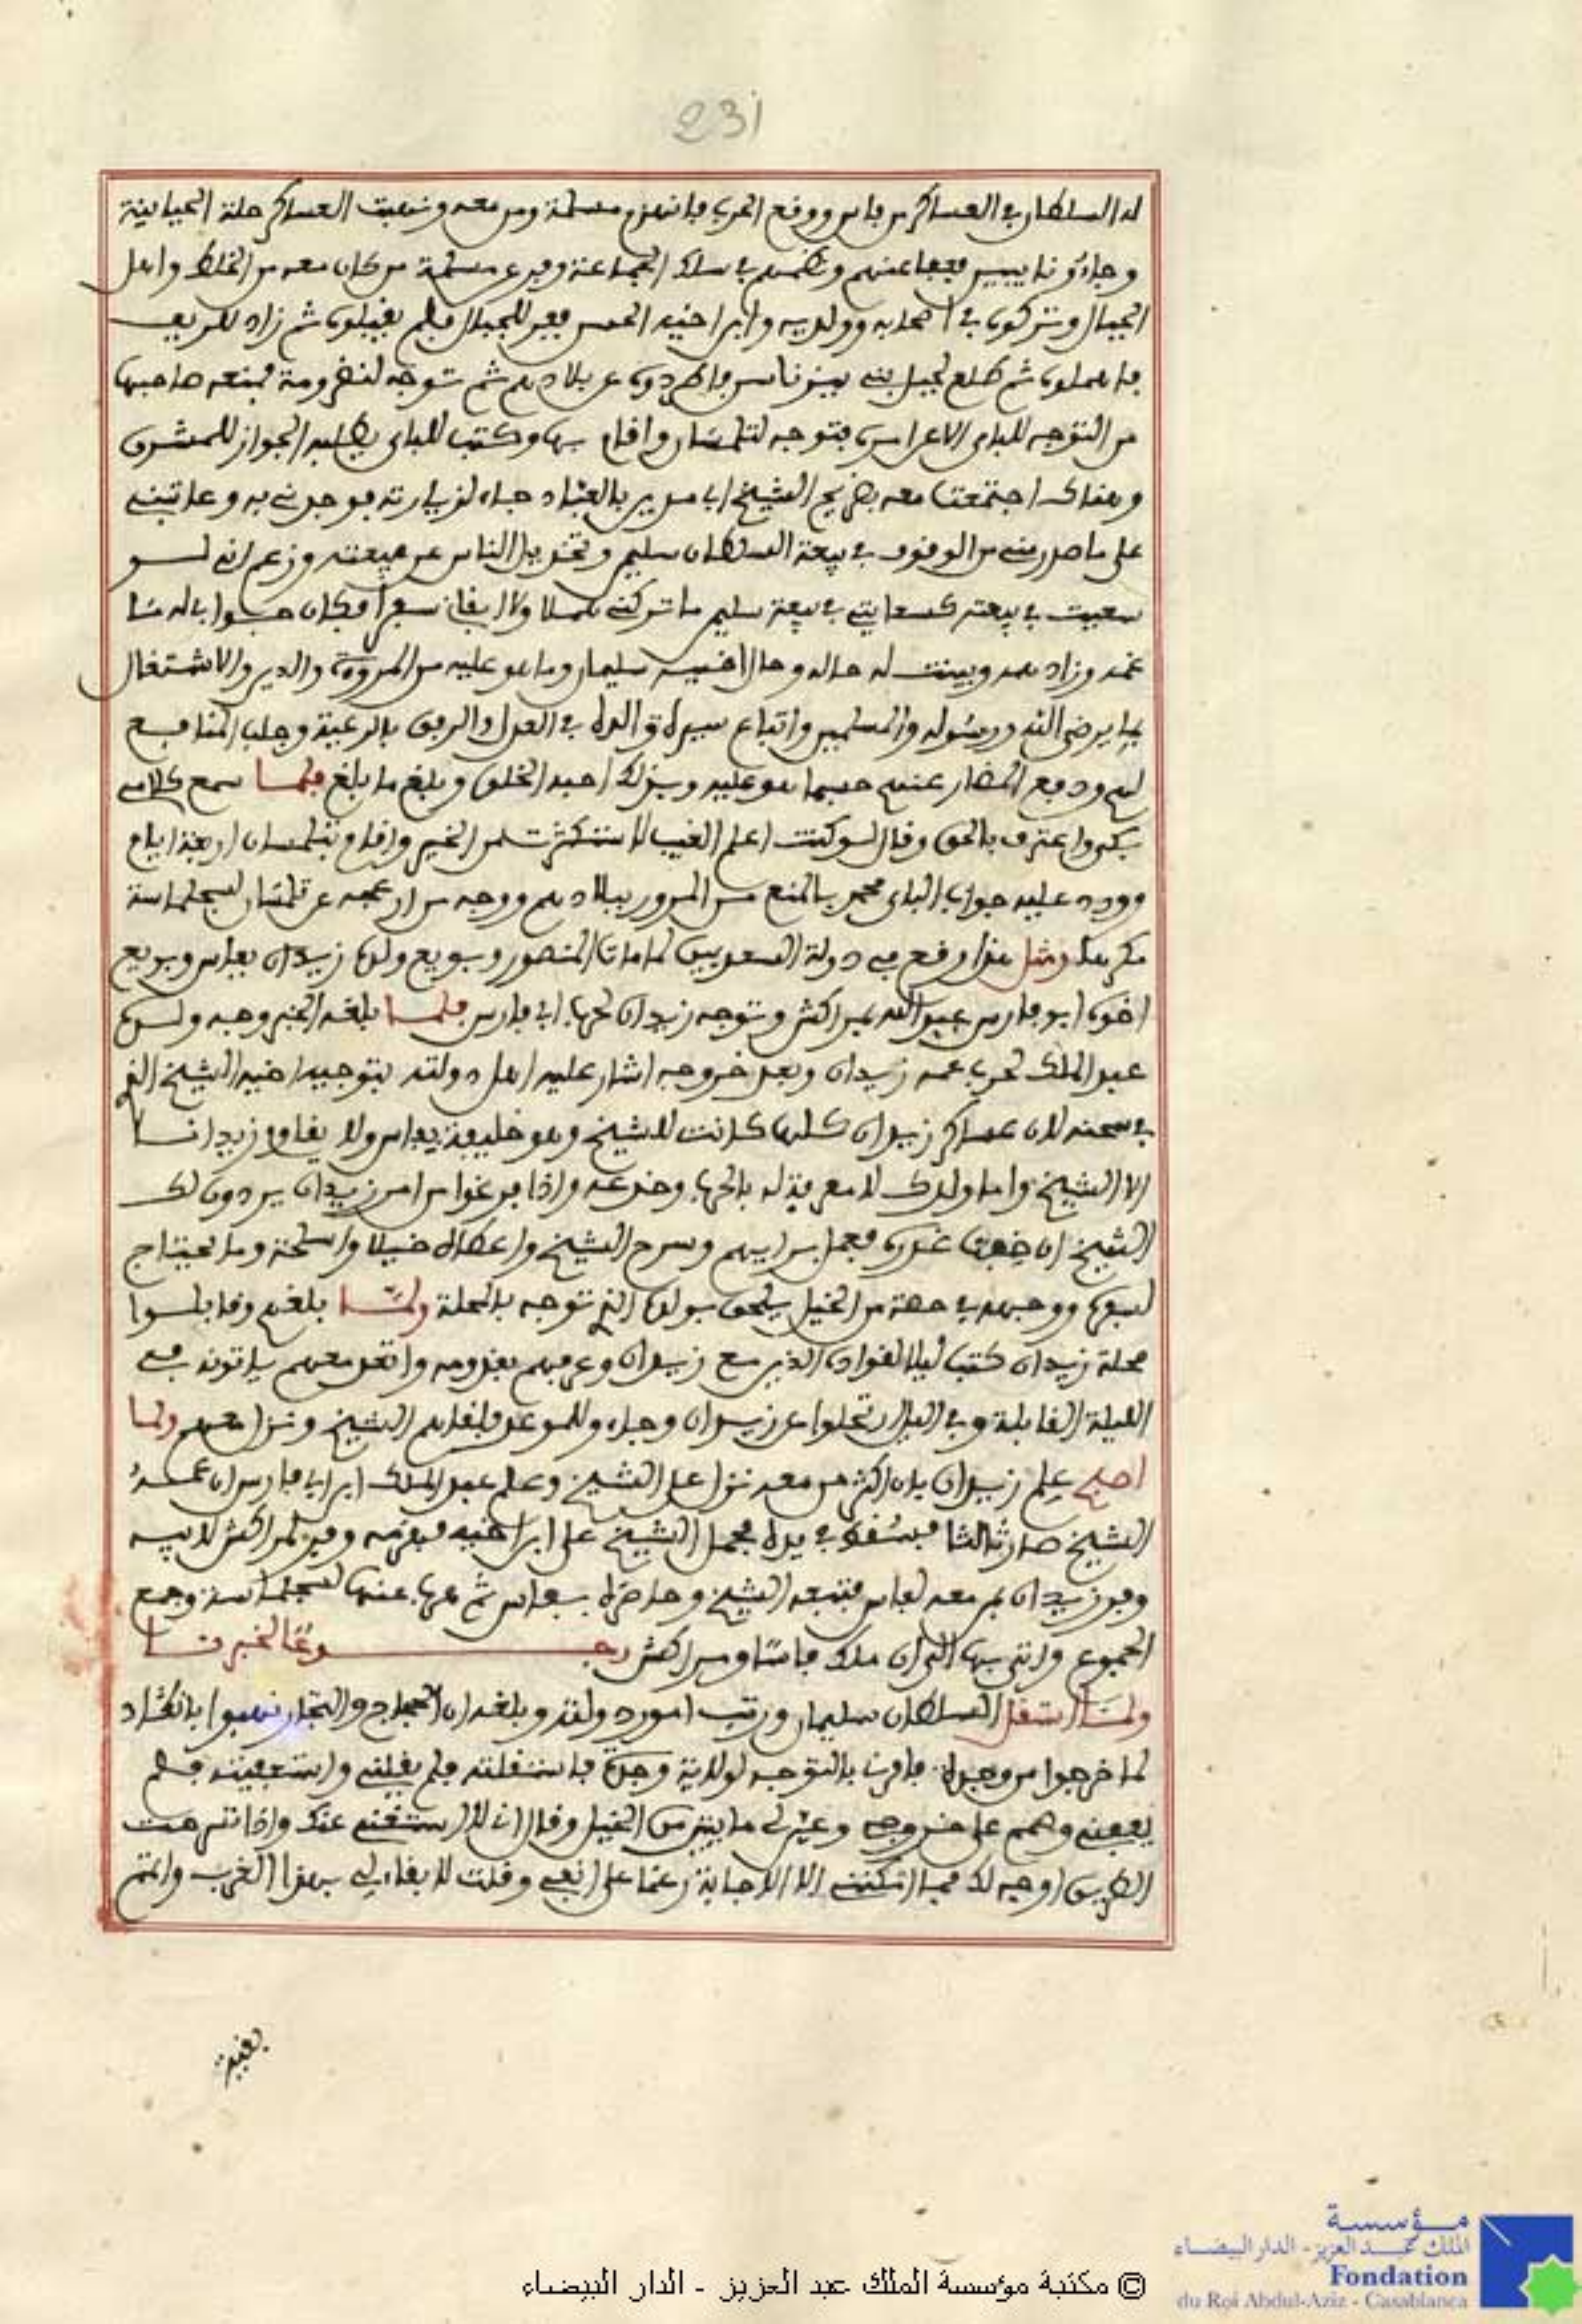 231
له السلطان في العساكر من فاس ووقع الحرب فانهزم مسلمة ومن معه ونهبت العساكر حلة الحياينة
وجاءو تايبين فعفا عنهم ونظمهم في سلك الجماعة وفر عن مسلمة من كان معه من الخلط واهل
الجبال وتركوه في اصحابه وولديه وابن اخيه الحسن ففر للجبال فلم يقبلوه ثم زاد للريف
فاهملوه ثم طلع لجبل بني يزناسن فاطردوه عن بلادهم ثم توجه لندرومة فمنعه صاحبها
من التوجه للباي الا عن امره فتوجه لتلمسان واقام بها وكتب للباي يطلب الجواز للمشرق
وهناك اجتمعت معه بضريح الشيخ ابي مدين بالعباد جاء لزيارته فوجدني به وعاتبني
على ما صدر مني من الوقوف في بيعة السلطان سليم وتخذيل الناس عن بيعته وزعم اني لو
سعيت في بيعته كسعايتي في بيعة سليم ما تركني هملا ولا ابقاني سعرا فكان جوابي له ما
غمه وزاد همه وبينت له حاله وحال اخيه سليمان وما هو عليه من المروءة والدين والاشتغال
بما يرضي الله ورسوله والمسلمين واتباع سيرة والده في العدل والرفق بالرعية وجلب المنافع
لهم ودفع المضار عنهم حسبما هو عليه وبذلك احبه الخلق وبلغ ما بلغ فلما سمع كلامي
بكى واعترف بالحق وقال لو كنت اعلم الغيب لاستكثرت من الخير واقام بتلمسان اربعة ايام
وورد عليه جواب الباي محمد بالمنع من المرور ببلادهم ووجه من ازعجه عن تلمسان لسجلماسة
مكرها ومثل هذا وقع في دولة السعديين لما مات المنصور وبويع ولده زيدان بفاس وبويع
اخوه ابو فارس عبد الله بمراكش وتوجه زيدان لحرب ابي فارس فلما بلغه الخبر وجه ولده
عبد الملك لحرب عمه زيدان وبعد خروجه اشار عليه اهل دولته بتوجيه اخيه الشيخ الذي
في سجنه لان عساكر زيدان كلها كانت للشيخ وهو خليفة بفاس ولا يقاوم زيدانا
الا الشيخ واما ولدك لا معرفة له بالحرب وخدعه واذا فرغوا من امر زيدان يردون لك
الشيخ ان خفت غدره فعمل برايهم وسرح الشيخ واعطاه خيلا واسلحة وما يحتاج
لسفره ووجهه في حصة من الخيل يلحق بولده الذي توجه بالمحلة ولما بلغهم وقابلوا
محلة زيدان كتب ليلا لقواده الذين مع زيدان وعرفهم بقدومه واتعد معهم ياتونه في
الليلة القابلة وفي الليل تخلوا عن زيدان وجاءو للموعد فلقاهم الشيخ ونزل معهم ولما
اصبح علم زيدان بان اكثر من معه نزل على الشيخ وعلم عبد الملك ابن ابي فارس ان عمه
الشيخ صار ثالثا فسقط في يده فحمل الشيخ على ابن اخيه فهزمه وفر لمراكش لابيه
وفر زيدان بمن معه لفاس فتبعه الشيخ وحاصره بفاس ثم هرب عنها لسجلماسة وجمع
الجموع واتى بها الى ان ملك فاسا ومراكش رجــــوعا لخبرنا
ولما استقل السلطان سليمان ورتب امور دولته وبلغه ان الحجاج والتجار نهبوا بانكاد
لما خرجوا من وجدة فامرني بالتوجه لولاية وجدة فاستقلته فلم يقبلني واستعفيته فلم
يعفني وصمم على خروجي وعين لي مايتين من الخيل وقال اني لا استغني عنك واذا تمهدت
الطريق اوجه لك فما امكنني الا الاجابة رغما على انفي وقلت لا بقاء لي بهذا الغرب واتم
بقية
© مكتبة مؤسسة الملك عبد العزيز - الدار البيضاء
مؤسسة
الملك عبد العزيز - الدار البيضاء
Fondation
du Roi Abdul-Aziz - Casablanca